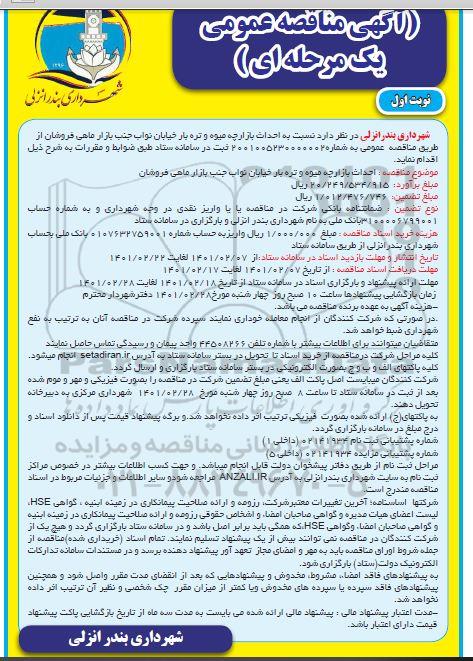 (آگهی مناقصه عمومی
یک مرحله ای)
شهرداری بندر انزلی
۱۲۹۶
نوبت اول
شهرداری بندرانزلی در نظر دارد نسبت به احداث بازارچه میوه و تره بار خیابان نواب جنب بازار ماهی فروشان از
طریق مناقصه عمومی به شماره ۲۰۰۱۰۰۵۲۳۰۰۰۰۰۲ ثبت در سامانه ستاد طبق ضوابط و مقررات به شرح ذیل
اقدام نماید.
موضوع مناقصه : احداث بازارچه میوه و تره بار خیابان نواب جنب بازار ماهی فروشان
مبلغ برآورد: ۲۰/۲۴۹/۵۳۴/۹۱۵ ریال
مبلغ تضمین: ۱/۰۱۲/۴۷۶/۷۴۶ ریال
نوع تضمین : ضمانتنامه بانکی شرکت در مناقصه یا یا واریز نقدی در وجه شهرداری و به شماره حساب
۳۱۰۰۰۰۶۷۹۹۰۰۱ بانک ملی به نام شهرداری بندر انزلی و بارگزاری در سامانه ستاد
هزینه خرید اسناد مناقصه : مبلغ ۱/۰۰۰/۰۰۰ ریال واریز به حساب شماره ۰۱۰۷۶۳۲۷۵۹۰۰۱ بانک ملی بحساب
شهرداری بندر انزلی از طریق سامانه ستاد
تاریخ انتشار و مهلت بازدید اسناد در سامانه ستاد: از ۱۴۰۱/۰۲/۰۷ لغایت ۱۴۰۱/۰۲/۲۲
مهلت دریافت اسناد مناقصه : از تاریخ ۱۴۰۱/۰۲/۰۷ لغایت ۱۴۰۱/۰۲/۱۷
مهلت ارائه پیشنهاد و بارگزاری اسناد در سامانه ستاد از تاریخ ۱۴۰۱/۰۲/۱۸ لغایت ۱۴۰۱/۰۲/۲۸
زمان بازگشایی پیشنهادها ساعت ۱۰ صبح روز چهار شنبه مورخ ۱۴۰۱/۰۲/۲۸ دفتر شهردار محترم
-هزینه آگهی به عهده برنده مناقصه می باشد.
-در صورتی که شرکت کنندگان از انجام معامله خودداری نمایند سپرده شرکت در مناقصه آنان به ترتیب به نفع
شهرداری ضبط خواهد شد.
متقاضیان میتوانند برای اطلاعات بیشتر با شماره تلفن ۴۴۵۰۸۲۶۶ واحد پیمان و رسیدگی تماس حاصل نمایند
کلیه مراحل شرکت در مناقصه از خرید اسناد تا تحویل در بستر سامانه ستاد به آدرس setadiran.ir انجام میشود.
کلیه پاکتهای الف و ب و ج بصورت الکترونیکی در بستر سامانه ستاد بارگزاری و ارسال گردد.
شرکت کنندگان میبایست اصل پاکت الف یعنی مبلغ تضمین شرکت در مناقصه را بصورت فیزیکی و مهر و موم شده
بعد از ثبت در سامانه ستاد تا ساعت ۸ صبح روز چهار شنبه مورخ ۱۴۰۱/۰۲/۲۸ شهرداری مرکزی به دبیرخانه
تحویل دهند.
به پاکتهای(ج) ارائه شده بصورت فیزیکی ترتیب اثر داده نخواهد شد. و برگه پیشنهاد قیمت پس از دانلود اسناد و
درج مبلغ در سامانه بارگزاری گردد.
شماره پشتیبانی ثبت نام ۰۲۱۴۱۹۳۴ (داخلی ۱)
شماره پشتیبانی مزایده ۰۲۱۴۱۹۳۴ (داخلی ۵)
مراحل ثبت نام از طریق دفاتر پیشخوان دولت قابل انجام میباشد. و جهت کسب اطلاعات بیشتر در خصوص مراکز
ثبت نام به سایت شهرداری بندرانزلی به آدرس ANZALI.IR مراجعه شود و سایر اطلاعات و جزئیات مربوط در اسناد
مناقصه مندرج است.
شرکتها اساسنامه، آخرین تغییرات معتبر شرکت، رزومه و ارائه صلاحیت پیمانکاری در زمینه ابنیه ، گواهی HSE،
لیست اعضای هیات مدیره و گواهی صاحبان امضا، و اشخاص حقوقی رزومه و ارائه صلاحیت پیمانکاری در زمینه ابنیه
و گواهی صاحبان امضا، وگواهی HSE،که همگی باید برابر اصل باشد و در سامانه ستاد بارگزاری گردد و هیچ یک از
شرکت کنندگان در مناقصه نمی توانند بیش از یک پیشنهاد تسلیم نمایند. تمام اسناد (خریداری شده) مناقصه از
جمله شروط اوراق مناقصه باید به مهر و امضای مجاز تعهد آور پیشنهاد دهنده برسد و در مستندات سامانه تدارکات
الکترونیک دولت(ستاد) بارگزاری شود.
به پیشنهادهای فاقد امضاء، مشروط، مخدوش و پیشنهادهایی که بعد از انقضای مدت مقرر واصل شود و همچنین
پیشنهادهای فاقد سپرده یا سپرده های مخدوش ویا کمتر از میزان مقرر چک شخصی و نظیر آن ترتیب اثر داده
نخواهد شد.
-مدت اعتبار پیشنهاد مالی : پیشنهاد مالی ارائه شده می بایست به مدت سه ماه از تاریخ بازگشایی پاکت پیشنهاد
قیمت دارای اعتبار باشد.
شهرداری بندر انزلی